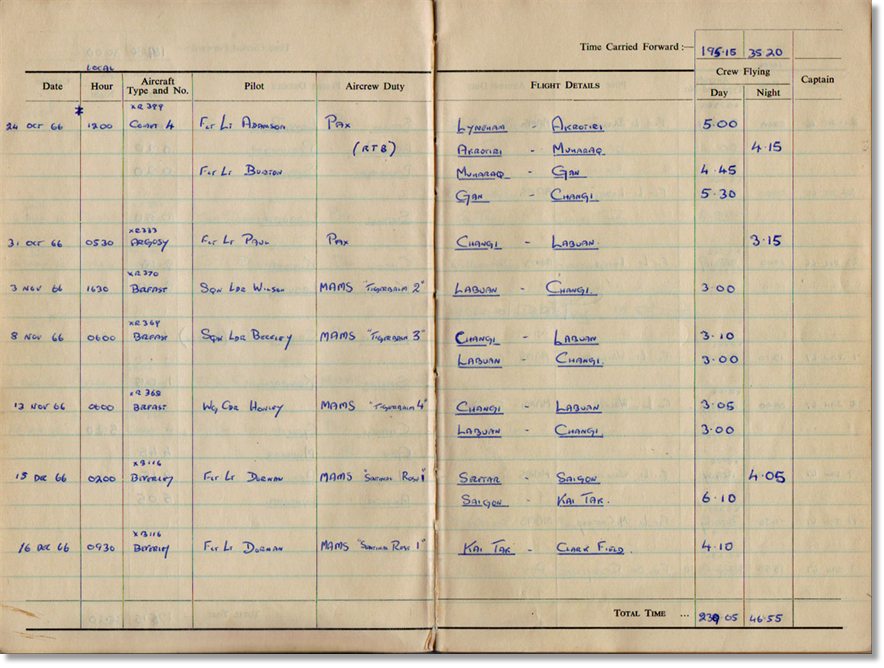 Time Carried Forward :— 195·15 35·20
LOCAL
Date Hour Aircraft Type and No. Pilot Aircrew Duty FLIGHT DETAILS Crew Flying Day Night Captain
XR399
24 OCT 66 1200 COMET 4 FLT LT ADAMSON PAX LYNEHAM - AKROTIRI 5·00
(RTB) AKROTIRI - MUHARAQ 4·15
FLT LT BURTON MUHARAQ - GAN 4·45
GAN - CHANGI 5·30
XR333
31 OCT 66 0530 ARGOSY FLT LT PAUL PAX CHANGI - LABUAN 3·15
XR370
3 NOV 66 1630 BELFAST SQN LDR WILSON MAMS "TIGERBALM 2" LABUAN - CHANGI 3·00
XR369
8 NOV 66 0600 SQN LDR BECKLEY MAMS "TIGERBALM 3" CHANGI - LABUAN 3·10
LABUAN - CHANGI 3·00
XR368
13 NOV 66 0600 BELFAST WG CDR MAMS "TIGERBALM 4" CHANGI - LABUAN 3·05
LABUAN - CHANGI 3·00
XB116
15 DEC 66 0200 BEVERLEY FLT LT DORMAN MAMS SELETAR - SAIGON 4·05
SAIGON - KAI TAK. 6·10
XB116
16 DEC 66 0930 BEVERLEY FLT LT DORMAN MAMS KAI TAK - CLARK FIELD. 4·10
TOTAL TIME ... 239·05 46·55